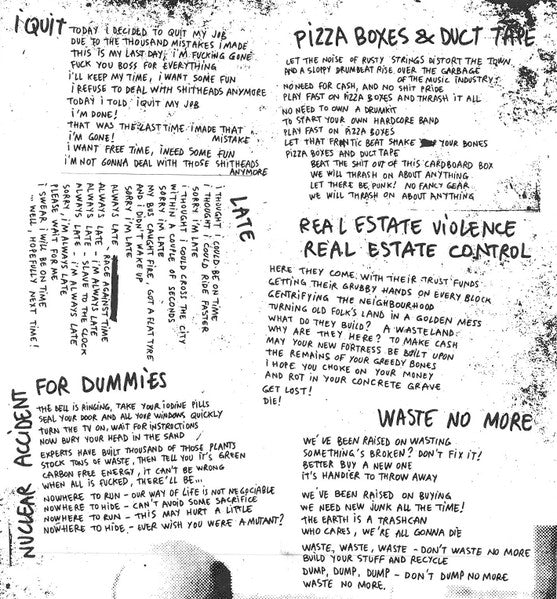 i QUIT
TODAY i DECIDED TO QUIT MY JOB
DUE TO THE THOUSAND MISTAKES I MADE
THIS IS MY LAST DAY, i'M FUCKING GONE
FUCK YOU BOSS FOR EVERYTHING
i'LL KEEP MY TIME, i WANT SOME FUN
i REFUSE TO DEAL WITH SHITHEADS ANYMORE
TODAY i TOLD: iQUIT MY JOB
i'M DONE!
THAT WAS THE LAST TIME i MADE THAT MISTAKE
i'M GONE!
i WANT FREE TIME, iNEED SOME FUN
i'M NOT GONNA DEAL WITH THOSE SHITHEADS ANYMORE
LATE
i THOUGHT i COULD BE ON TIME
i THOUGHT i COULD RIDE FASTER
SORRY i'M LATE
i THOUGHT i COULD CROSS THE CITY
WITHIN A COUPLE OF SECONDS
SORRY i'M LATE
MY BUS CAUGHT FIRE, GOT A FLAT TYRE
AND i DIDN'T WAKE UP
SORRY, i'M LATE
ALWAYS LATE
RACE AGAINST TIME
ALWAYS LATE - i'M ALWAYS LATE
ALWAYS LATE - SLAVE TO THE CLOCK
ALWAYS LATE - i'M ALWAYS LATE
SORRY, i'M ALWAYS LATE
PLEASE WAIT FOR ME
i SWEAR i WILL BE ON TIME
... WELL, HOPEFULLY NEXT TIME!
NUCLEAR ACCIDENT
FOR DUMMiES
THE BELL iS RiNGiNG, TAKE YOUR iODiNE PiLLS
SEAL YOUR DOOR AND ALL YOUR WiNDOWS QUiCKLY
TURN THE TV ON, WAIT FOR iNSTRUCTiONS
NOW BURY YOUR HEAD iN THE SAND
EXPERTS HAVE BUILT THOUSAND OF THOSE PLANTS
STOCK TONS OF WASTE, THEN TELL YOU iT'S GREEN
CARBON FREE ENERGY, iT CAN'T BE WRONG
WHEN ALL iS FUCKED, THERE'LL BE...
NOWHERE TO RUN - OUR WAY OF LiFE iS NOT NEGOCiABLE
NOWHERE TO HiDE - CAN'T AVOiD SOME SACRiFiCE
NOWHERE TO RUN - THiS MAY HURT A LiTTLE
NOWHERE TO HiDE - EVER WiSH YOU WERE A MUTANT?
PiZZA BOXES & DUCT TAPE
LET THE NOiSE OF RUSTY STRiNGS DiSTORT THE TOWN
AND A SLOPPY DRUMBEAT RiSE OVER THE GARBAGE
OF THE MUSiC iNDUSTRY
NO NEED FOR CASH, AND NO SHiT PRiDE
PLAY FAST ON PiZZA BOXES AND THRASH iT ALL
NO NEED TO OWN A DRUMKiT
TO START YOUR OWN HARDCORE BAND
PLAY FAST ON PiZZA BOXES
LET THAT FRANTiC BEAT SHAKE YOUR BONES
PiZZA BOXES AND DUCT TAPE
BEAT THE SHiT OUT OF THiS CARDBOARD BOX
WE WiLL THRASH ON ABOUT ANYTHiNG
LET THERE BE PUNK! NO FANCY GEAR
WE WiLL THRASH ON ABOUT ANYTHiNG
REAL ESTATE ViOLENCE
REAL ESTATE CONTROL
HERE THEY COME WiTH THEiR TRUST FUNDS
GETTiNG THEiR GRUBBY HANDS ON EVERY BLOCK
GENTRiFYiNG THE NEiGHBOURHOOD
TURNiNG OLD FOLK'S LAND iN A GOLDEN MESS
WHAT DO THEY BUiLD? A WASTELAND
WHY ARE THEY HERE? TO MAKE CASH
MAY YOUR NEW FORTRESS BE BUiLT UPON
THE REMAiNS OF YOUR GREEDY BONES
i HOPE YOU CHOKE ON YOUR MONEY
AND ROT iN YOUR CONCRETE GRAVE
GET LOST!
DiE!
WASTE NO MORE
WE'VE BEEN RAiSED ON WASTiNG
SOMETHiNG'S BROKEN? DON'T FiX iT!
BETTER BUY A NEW ONE
iT'S HANDiER TO THROW AWAY
WE'VE BEEN RAiSED ON BUYiNG
WE NEED NEW JUNK ALL THE TiME!
THE EARTH iS A TRASHCAN
WHO CARES, WE'RE ALL GONNA DiE
WASTE, WASTE, WASTE - DON'T WASTE NO MORE
BUiLD YOUR STUFF AND RECYCLE
DUMP, DUMP, DUMP - DON'T DUMP NO MORE
WASTE NO MORE.